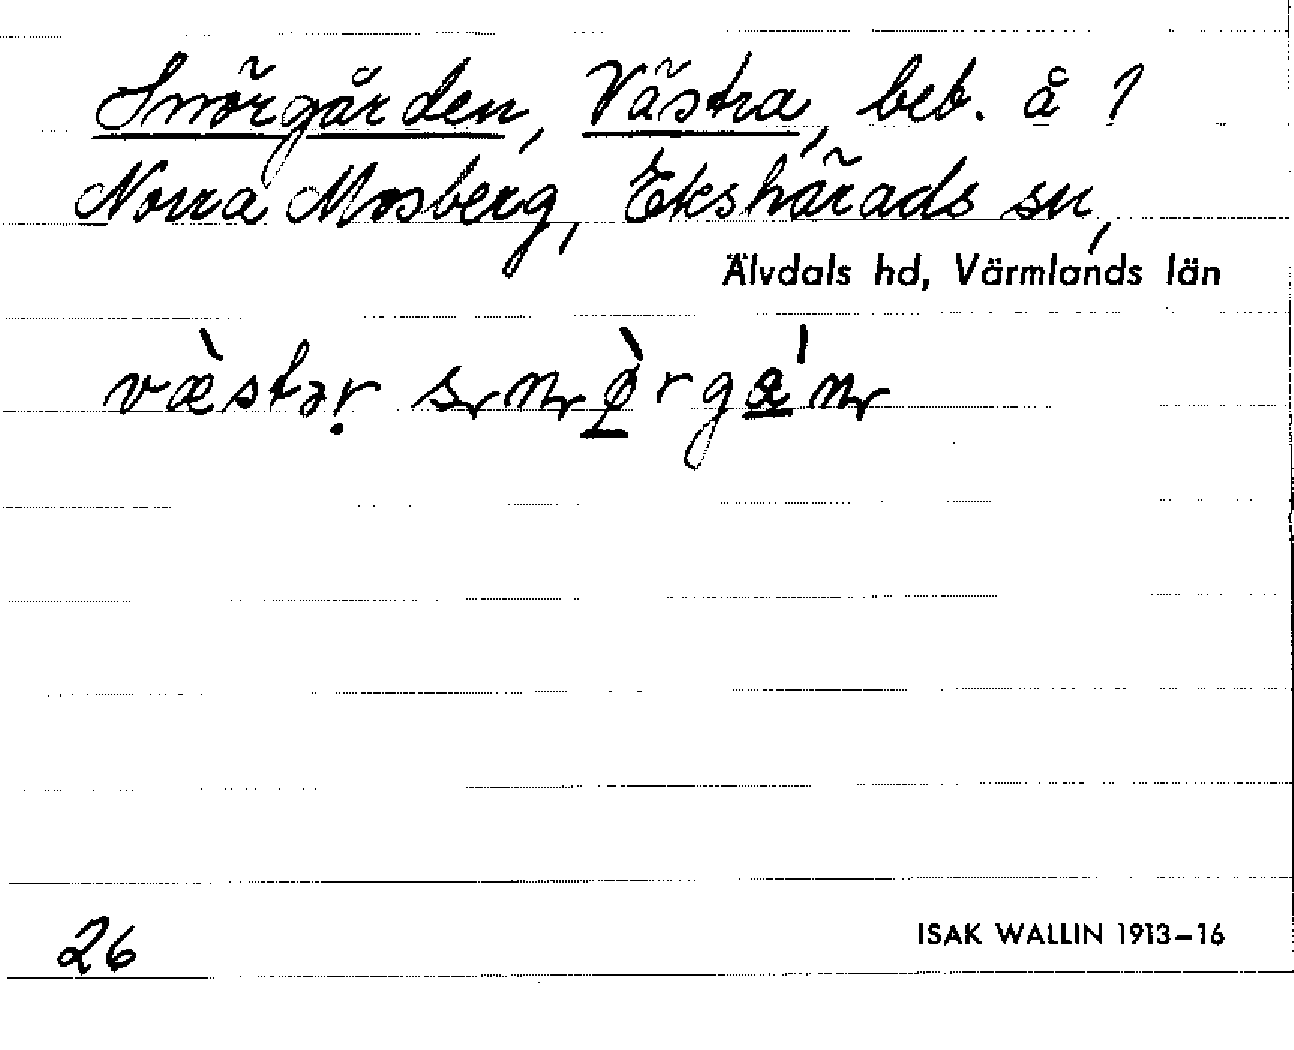 Snörgården, Västra, beb. å 1
Norra Mosberg, Ekshärads sn,
Älvdals hd, Värmlands län
væ̀stər̤ snø̀rgǽn
26
ISAK WALLIN 1913–16